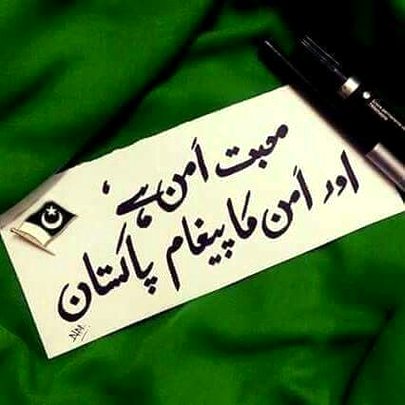 محبت اَمن ہے،
اور اَمن کا پیغام پاکستان
NM